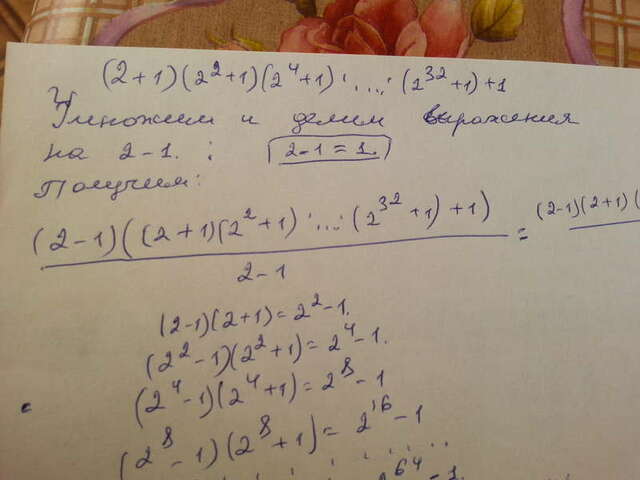 (2+1)(2²+1)(2⁴+1)·...·(2³²+1)+1
Умножим и делим выражения
на 2-1. : 2-1=1.
Получим:
(2-1)((2+1)(2²+1)·...·(2³²+1)+1)/2-1 = (2-1)(2+1)(
(2-1)(2+1)=2²-1.
(2²-1)(2²+1)=2⁴-1.
(2⁴-1)(2⁴+1)=2⁸-1
(2⁸-1)(2⁸+1)=2¹⁶-1
2⁶⁴-1